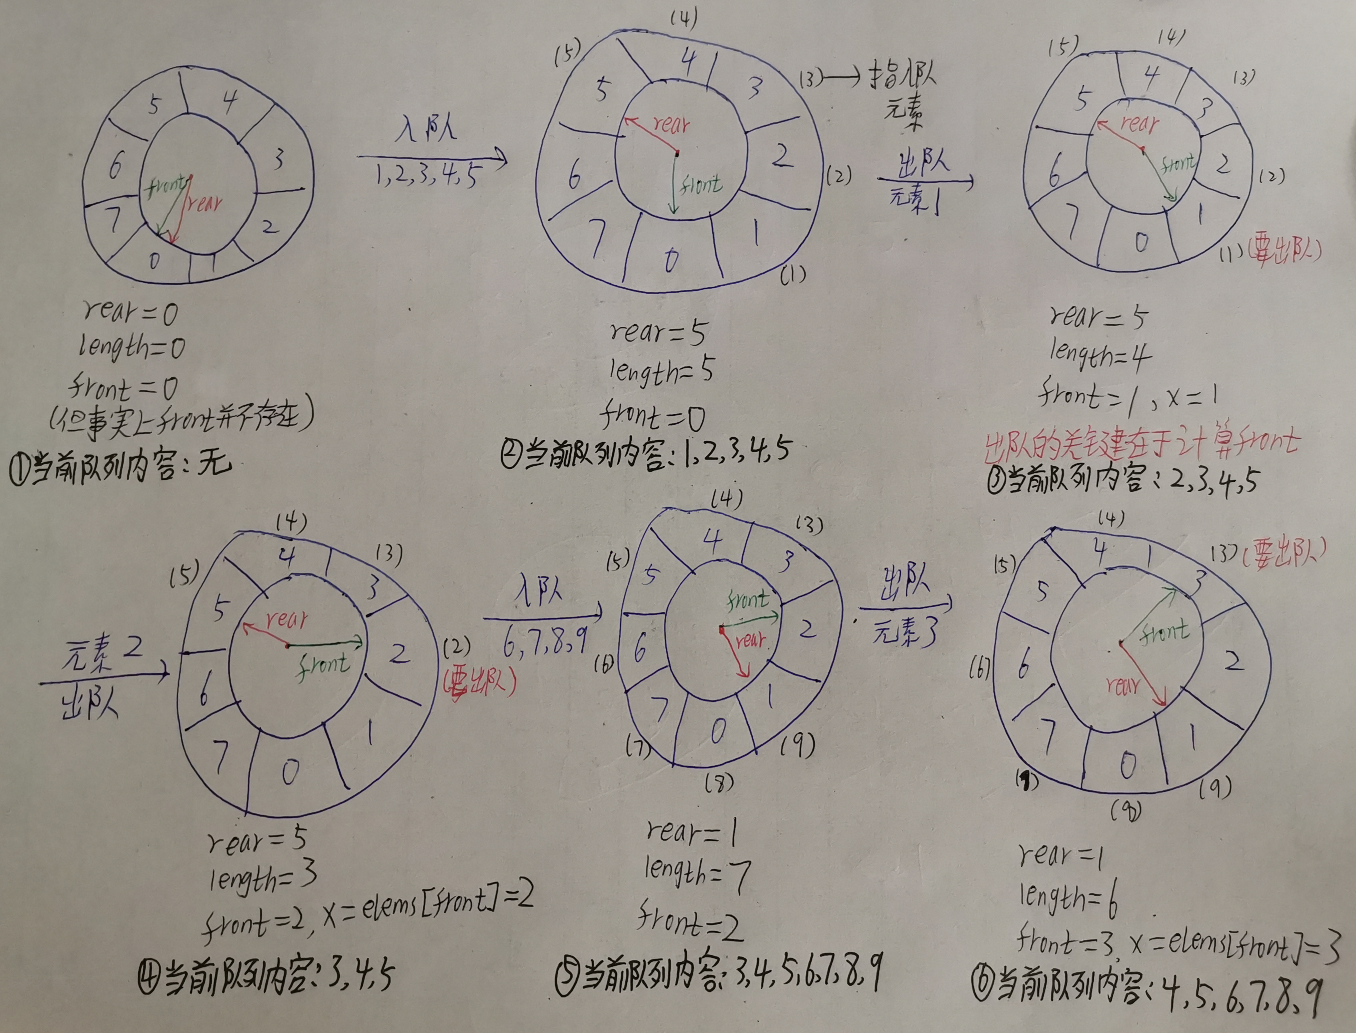 5 4
6 3
7 2
0 1
front
rear
rear=0
length=0
front=0
(但事实上front并不存在)
①当前队列内容:无
入队
1,2,3,4,5
(5) (4)
(3)→指入队
元素
5 4 3
6 2 (2)
7 0 1
(1)
rear
front
rear=5
length=5
front=0
②当前队列内容:1,2,3,4,5
出队
元素1
(5) (4) (3)
5 4 3
6 2 (2)
7 0 1
(1)(要出队)
rear
front
rear=5
length=4
front=1,x=1
出队的关键在于计算front
③当前队列内容:2,3,4,5
元素2
出队
(5) (4) (3)
5 4 3
6 2 (2)
(要出队)
7 0 1
rear
front
rear=5
length=3
front=2,x=elems[front]=2
④当前队列内容:3,4,5
入队
6,7,8,9
(5) (4) (3)
5 4 3
(6) 6 2
7 0 1
(7) (8) (9)
front
rear
rear=1
length=7
front=2
⑤当前队列内容:3,4,5,6,7,8,9
出队
元素3
(5) (4) (3)(要出队)
5 4 3
(6) 6 2
7 0 1
(8) (9)
front
rear
rear=1
length=6
front=3,x=elems[front]=3
⑥当前队列内容:4,5,6,7,8,9